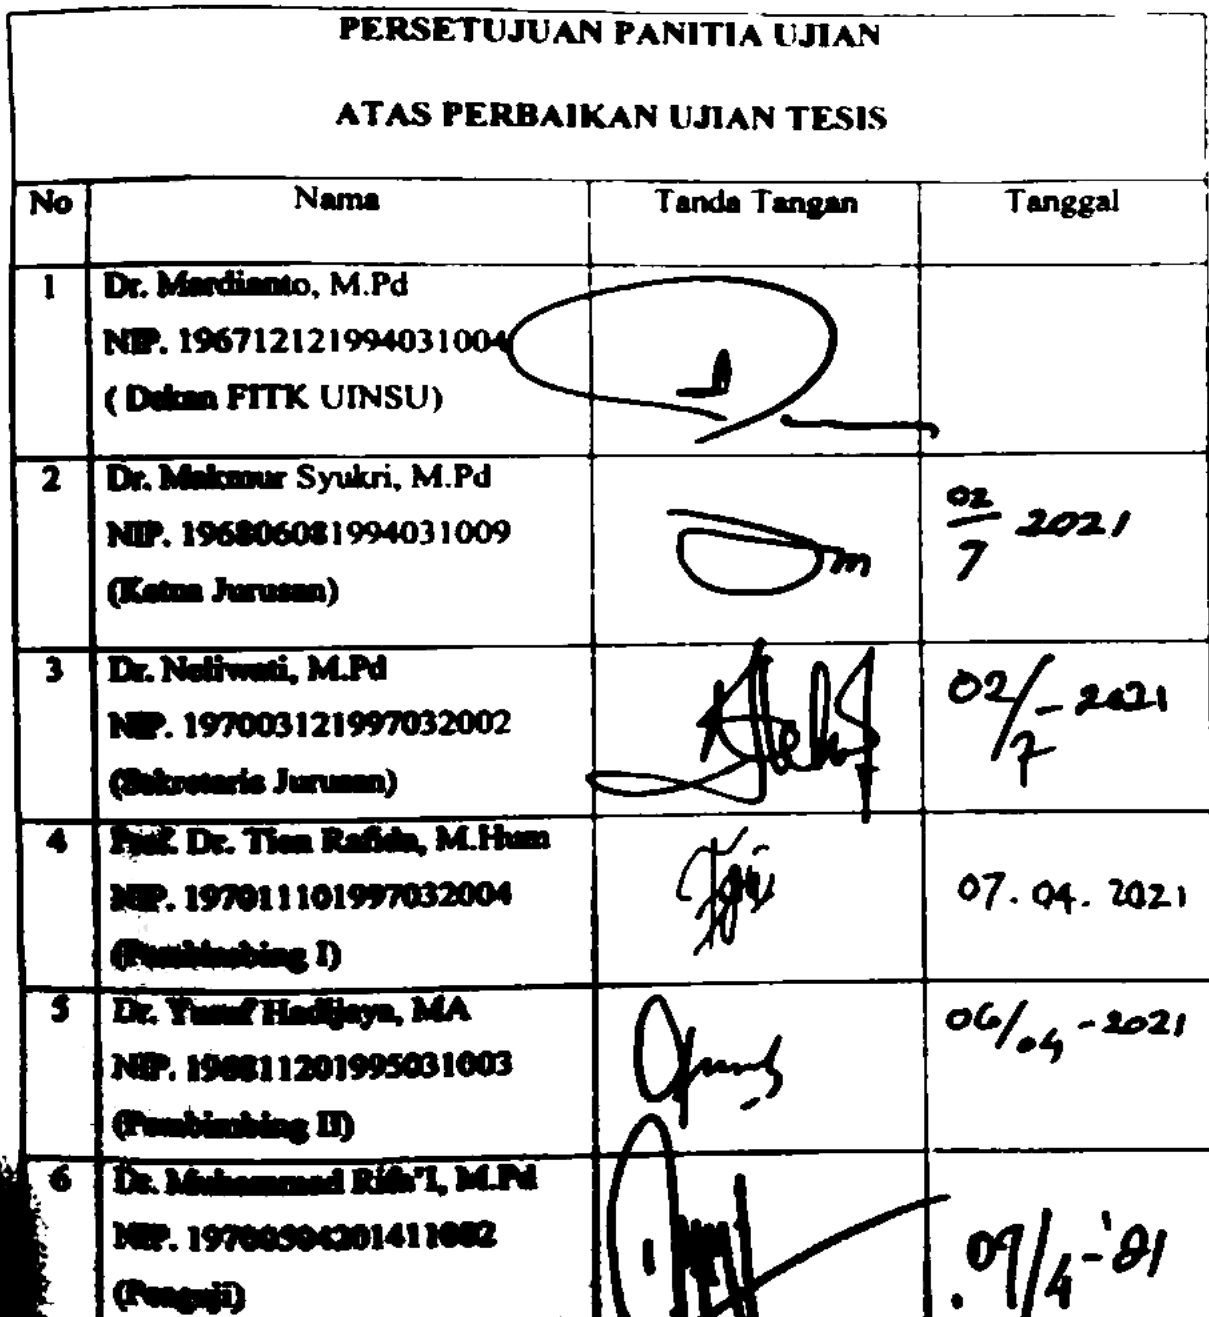 PERSETUJUAN PANITIA UJIAN
ATAS PERBAIKAN UJIAN TESIS
No Nama Tanda Tangan Tanggal
1 Dr. Mardianto, M.Pd
NIP. 196712121994031004
( Dekan FITK UINSU)
2 Dr. Makmur Syukri, M.Pd
NIP. 196806081994031009
(Ketua Jurusan)
02/7 2021
3 Dr. Neliwati, M.Pd
NIP. 197003121997032002
(Sekretaris Jurusan)
02/7 - 2021
4 Prof. Dr. Tien Rafida, M.Hum
NIP. 197011101997032004
(Pembimbing I)
07.04.2021
5 Dr. Yusuf Hadijaya, MA
NIP. 196811201995031003
(Pembimbing II)
06/04 - 2021
6 Dr. Muhammad Rifa'I, M.Pd
NIP.
(Penguji)
09/4-